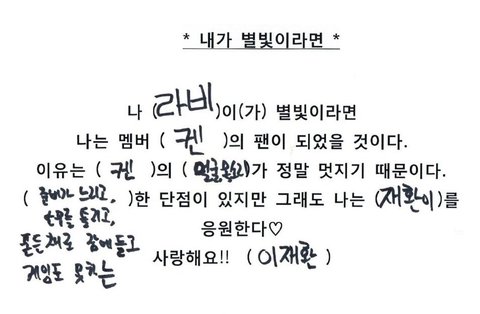 * 내가 별빛이라면 *
나 (라비)이(가) 별빛이라면
나는 멤버 ( 켄 )의 팬이 되었을 것이다.
이유는 ( 켄 )의 ( )가 정말 멋지기 때문이다.
( 준비가 느리고, 안무를 틀리고, 폰든채로 잠에들고 게임도 못하는 )한 단점이 있지만 그래도 나는 (재환이)를
응원한다♡
사랑해요!! ( 이재환 )